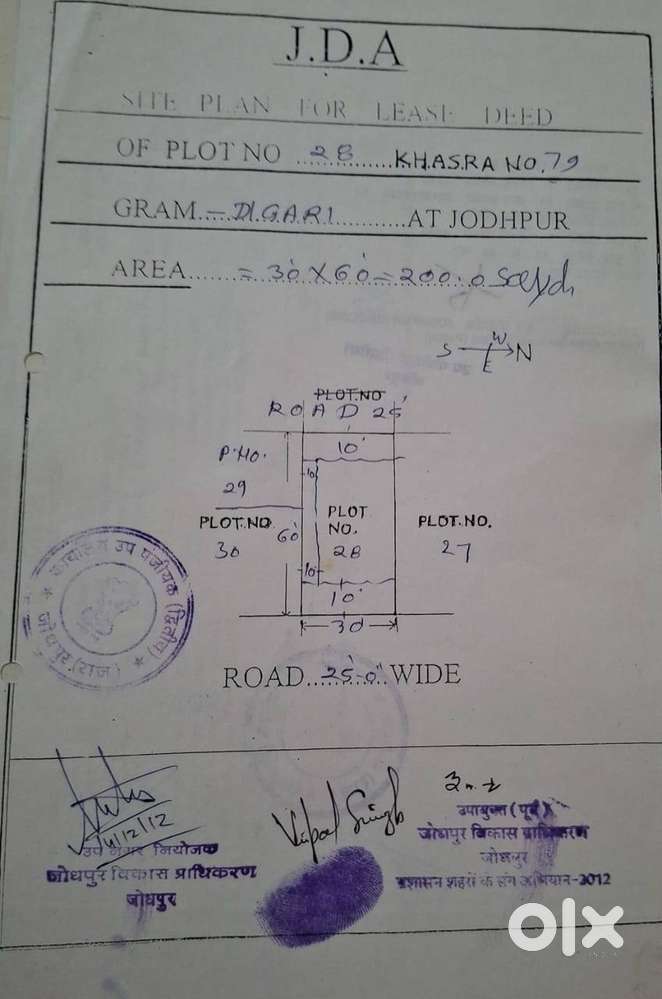 J.D.A
SITE PLAN FOR LEASE DEED
OF PLOT NO ...28......... KHASRA NO. 79
GRAM.-DIGARI...........AT JODHPUR
AREA......= 30' X 60' = 200.0 Sqyd.
W
S N
E
PLOT.NO
ROAD 25'
10'
P.NO.
29
10'
PLOT.NO
30
60'
PLOT
NO.
28
PLOT.NO.
27
10'
10'
30
ROAD...25'-0"..WIDE
कार्यालय उप पंजीयक (द्वितीय)
जोधपुर (राज.)
4/12/12
Vipal Singh
उप नगर नियोजक
जोधपुर विकास प्राधिकरण
जोधपुर
उपायुक्त (पूर्व)
जोधपुर विकास प्राधिकरण
जोधपुर
प्रशासन शहरों के संग अभियान-2012
olx